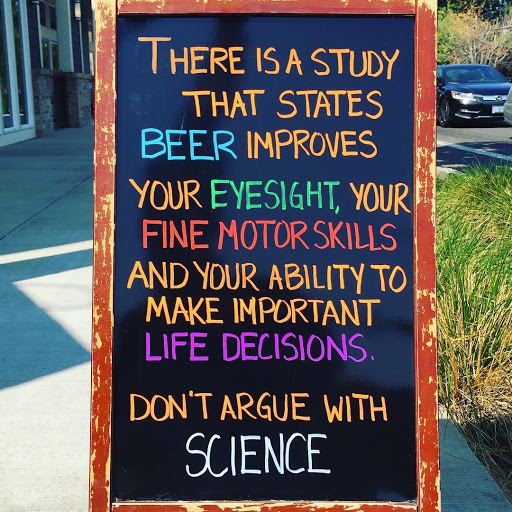 THERE IS A STUDY
THAT STATES
BEER IMPROVES
YOUR EYESIGHT, YOUR
FINE MOTOR SKILLS
AND YOUR ABILITY TO
MAKE IMPORTANT
LIFE DECISIONS.
DON'T ARGUE WITH
SCIENCE